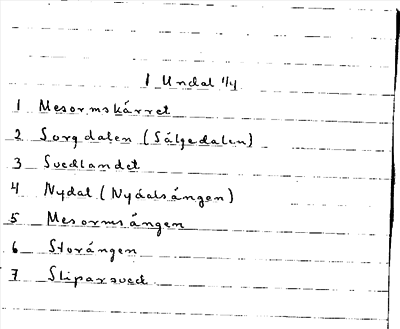 1 Undal 1/4
1 Mesormskárret
2 Sorgdalen (Sálgedalen)
3 Svedlandet
4 Nydal (Nydalsángen)
5 Mesormsángen
6 Storángen
7 Sliparsved